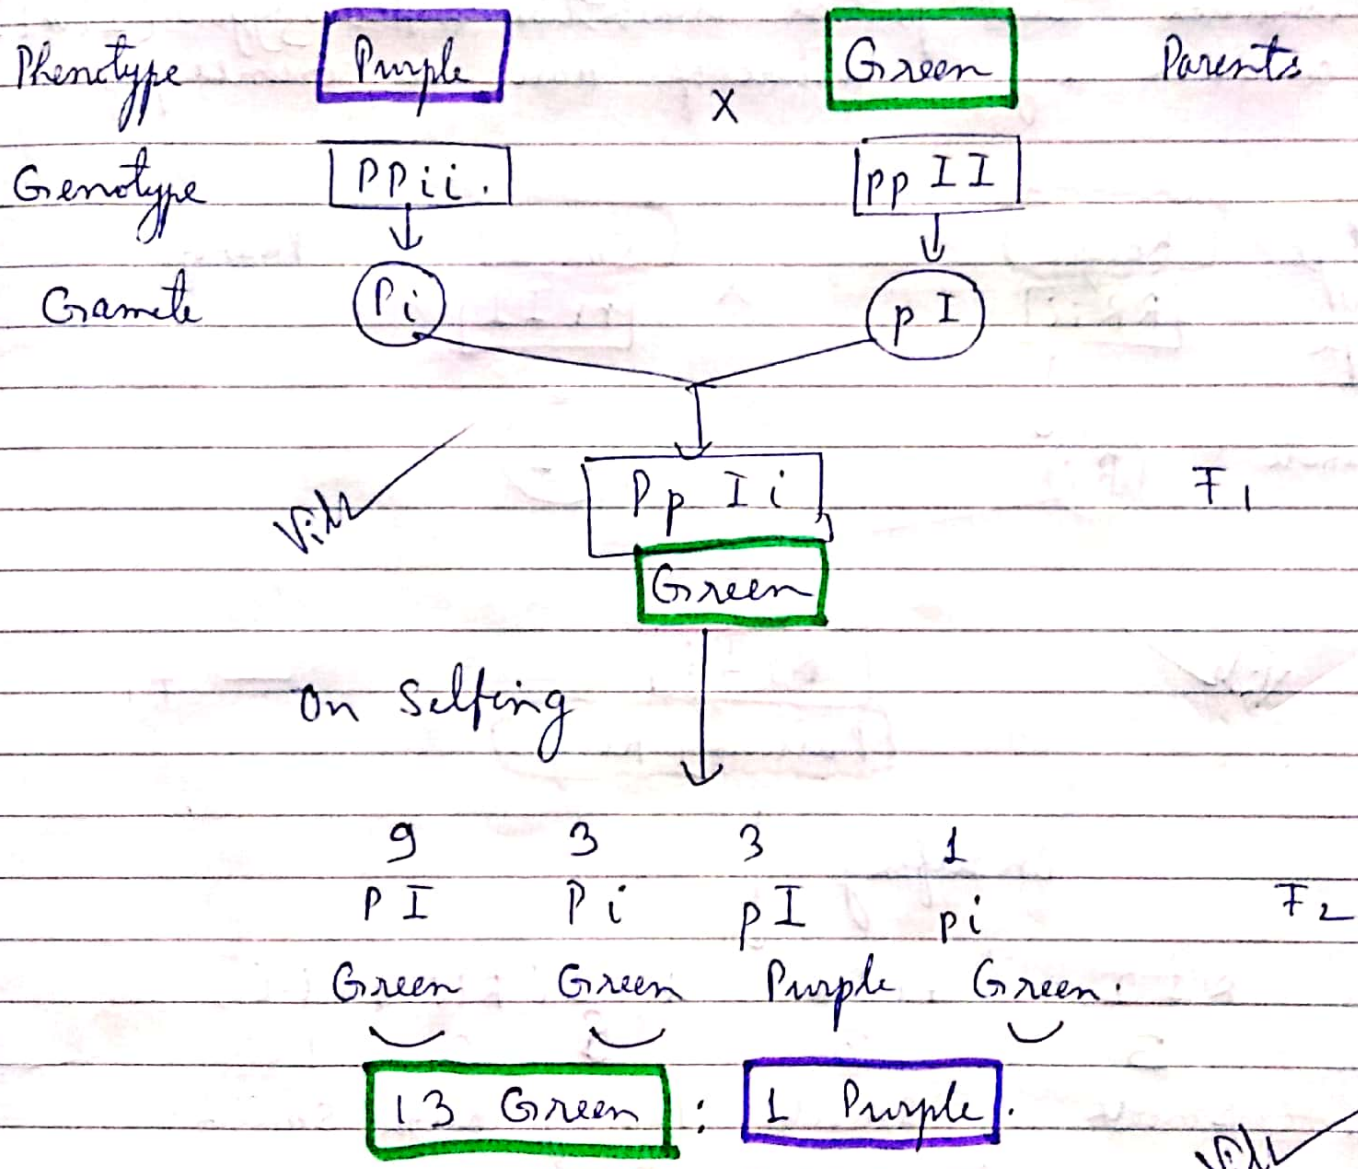 Phenotype Purple X Green Parents
Genotype PPii. pp II
Gamete Pi p I
Pp Ii F1
Green
On Selfing
9 3 3 1
PI Pi pI pi F2
Green Green Purple Green.
13 Green : 1 Purple.